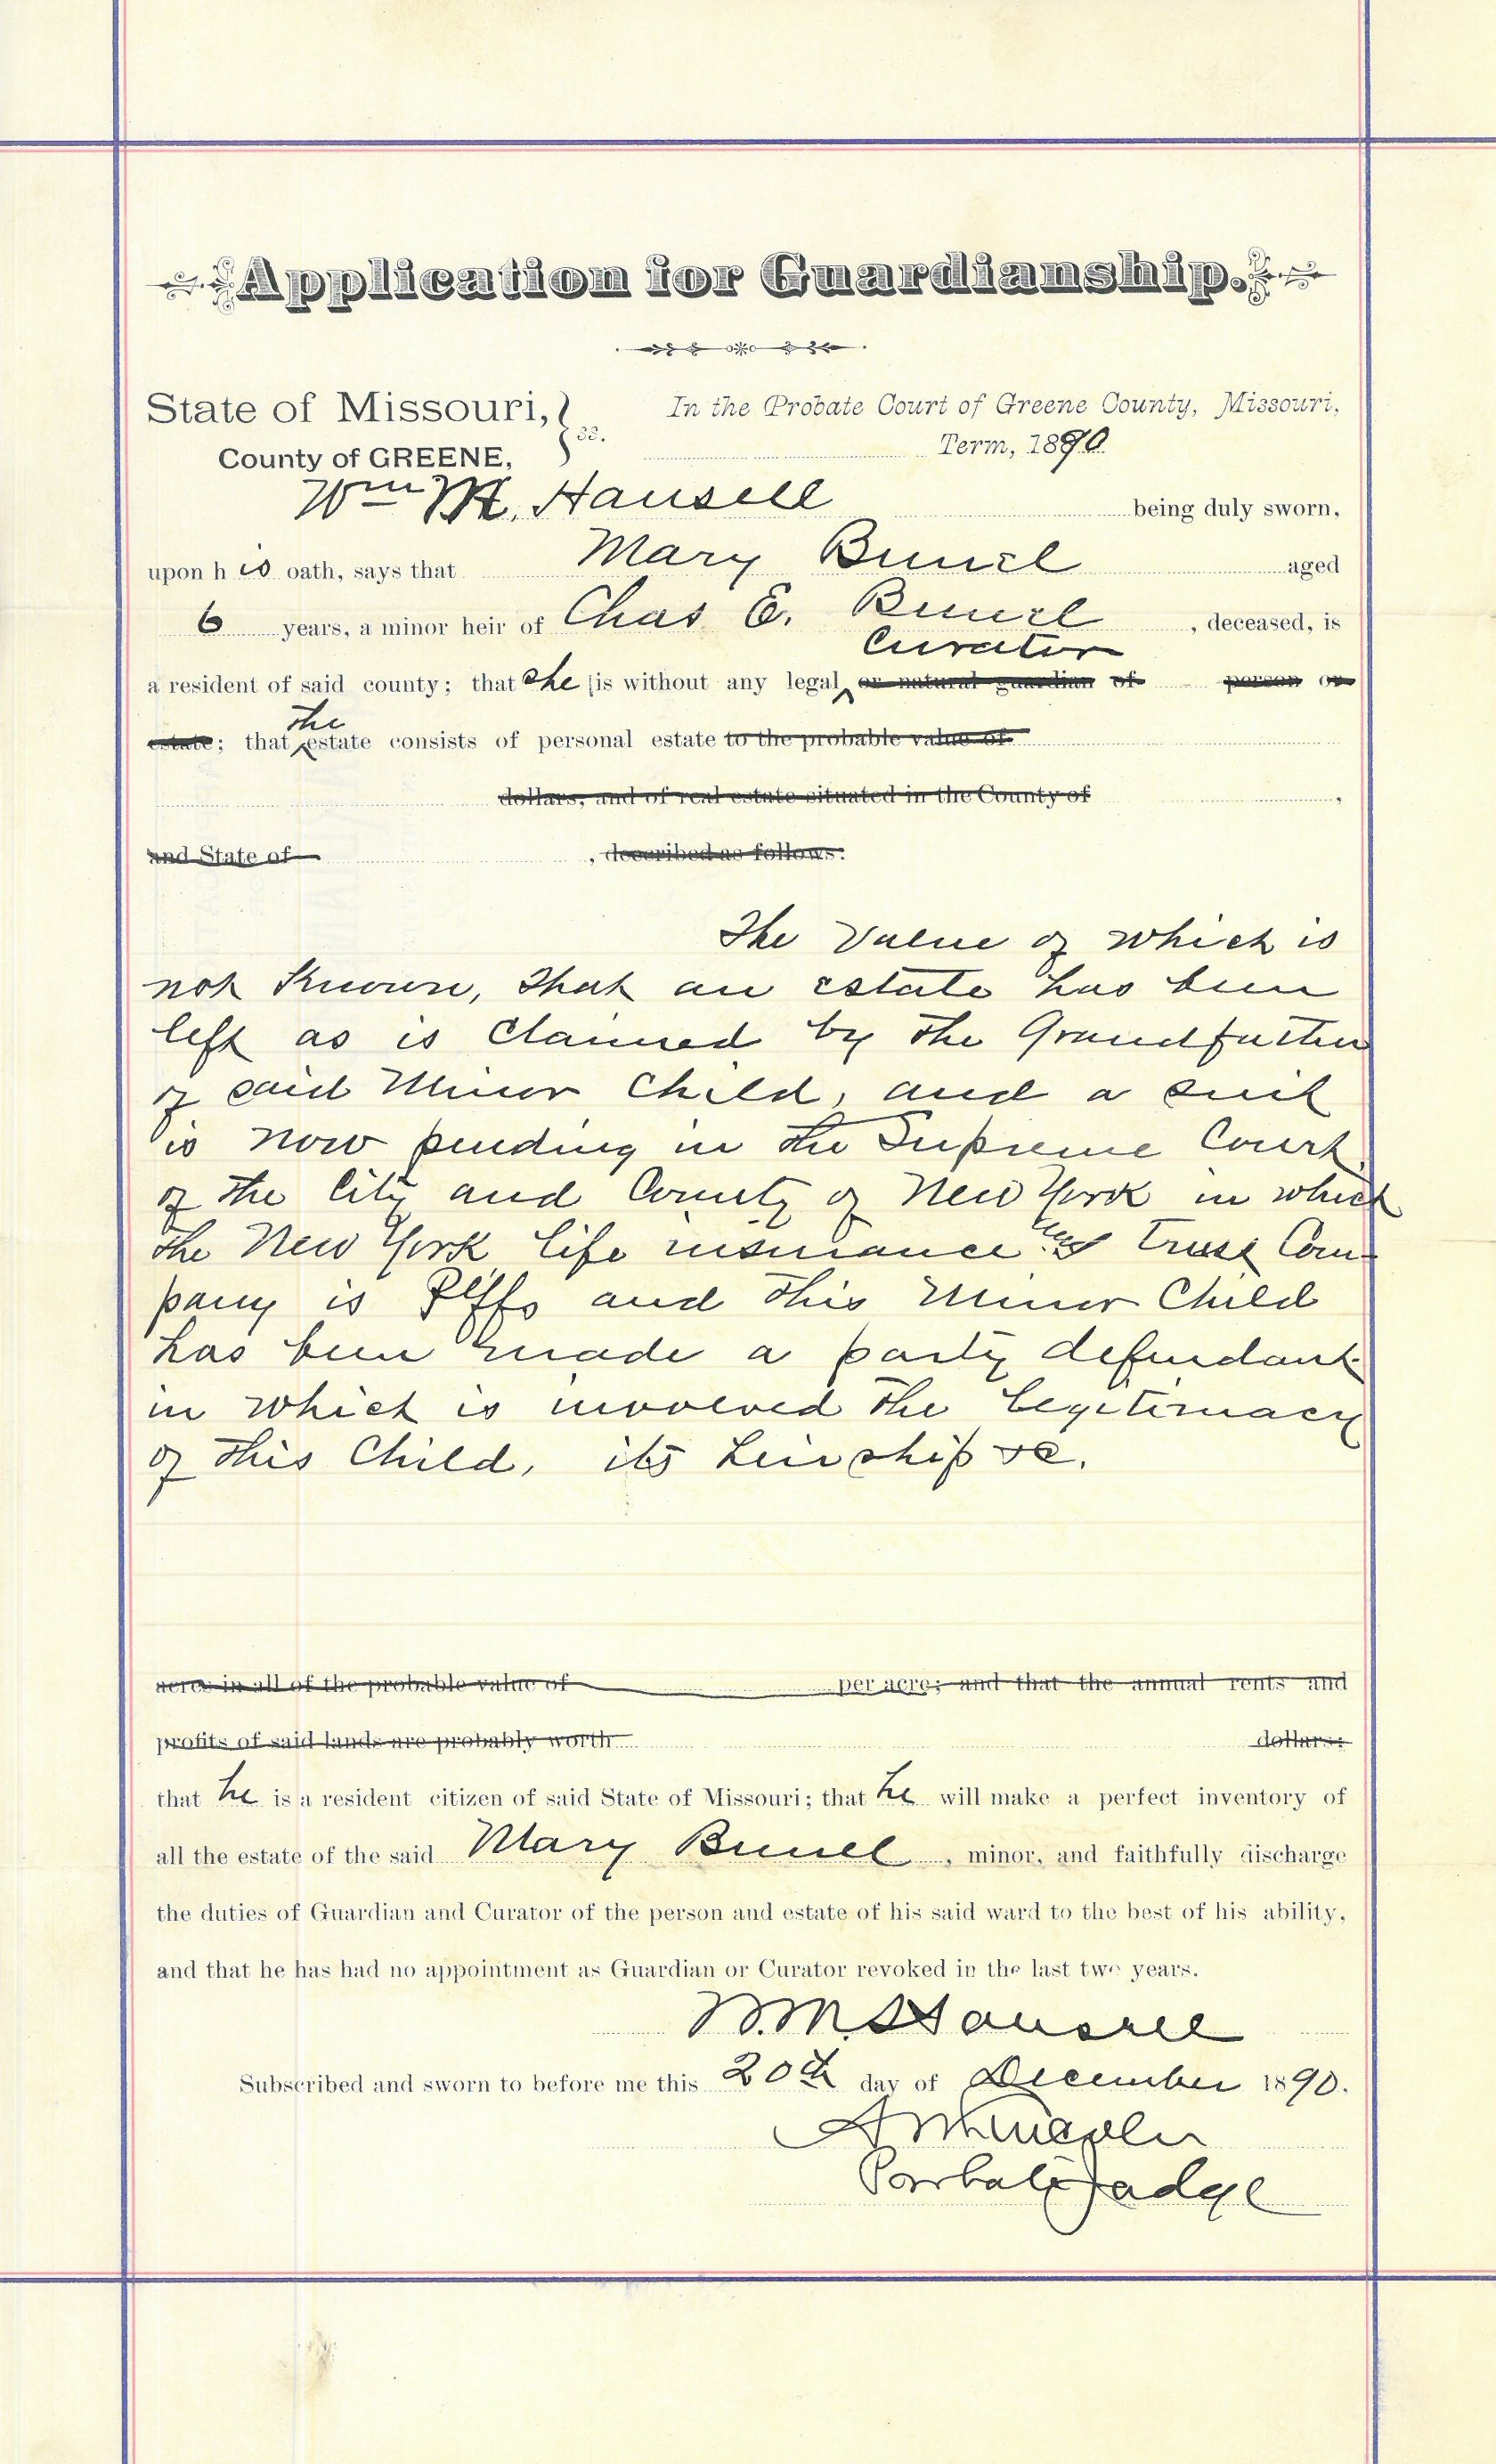 Application for Guardianship.
State of Missouri,
County of GREENE,
ss.
In the Probate Court of Greene County, Missouri,
Term, 1890.
Wm M. Hansell being duly sworn,
upon his oath, says that Mary Bunel aged
6 years, a minor heir of Chas E. Bunel, deceased, is
Curator
a resident of said county; that she is without any legal or natural guardian of person or
the
estate; that estate consists of personal estate to the probable value of
dollars, and of real estate situated in the County of ,
and State of , described as follows:
The Value of which is
not Known, that an estate has been
left as is Claimed by the Grandfather
of said Minor Child, and a suit
is now pending in the Supreme Court
of the City and County of New York in which
the New York Life insurance and Trust Com-
pany is Plffs and this Minor Child
has been made a party defendant
in which is involved the Legitimacy
of this Child, its heirship &c.
acres in all of the probable value of per acre; and that the annual rents and
profits of said lands are probably worth dollars;
that he is a resident citizen of said State of Missouri; that he will make a perfect inventory of
all the estate of the said Mary Bunel, minor, and faithfully discharge
the duties of Guardian and Curator of the person and estate of his said ward to the best of his ability,
and that he has had no appointment as Guardian or Curator revoked in the last two years.
W. M. Hansell
Subscribed and sworn to before me this 20th day of December 1890.
Lincoln
Probate Judge